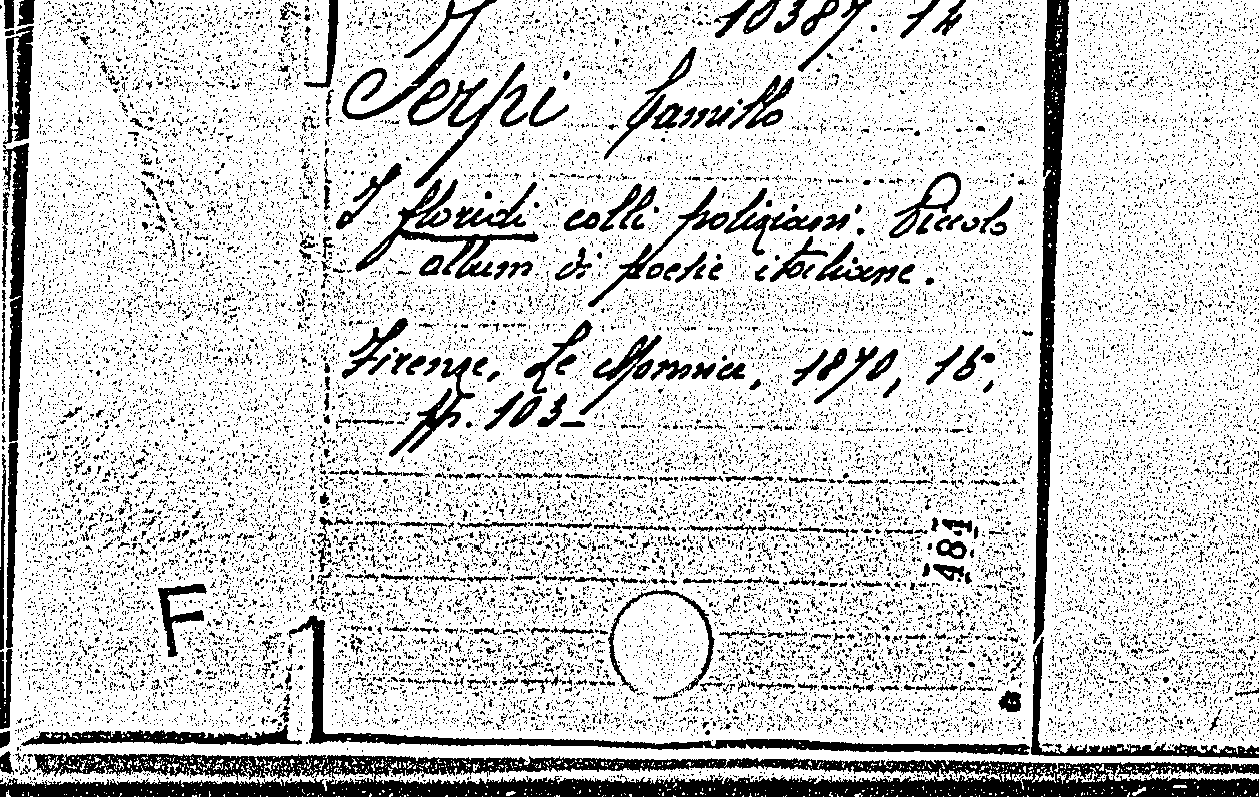 10387. 14
Serpi Camillo
I floridi colli poliziani. Piccolo
album di poesie italiane.
Firenze, Le Monnier, 1870, 16°,
pp. 103_
481
F